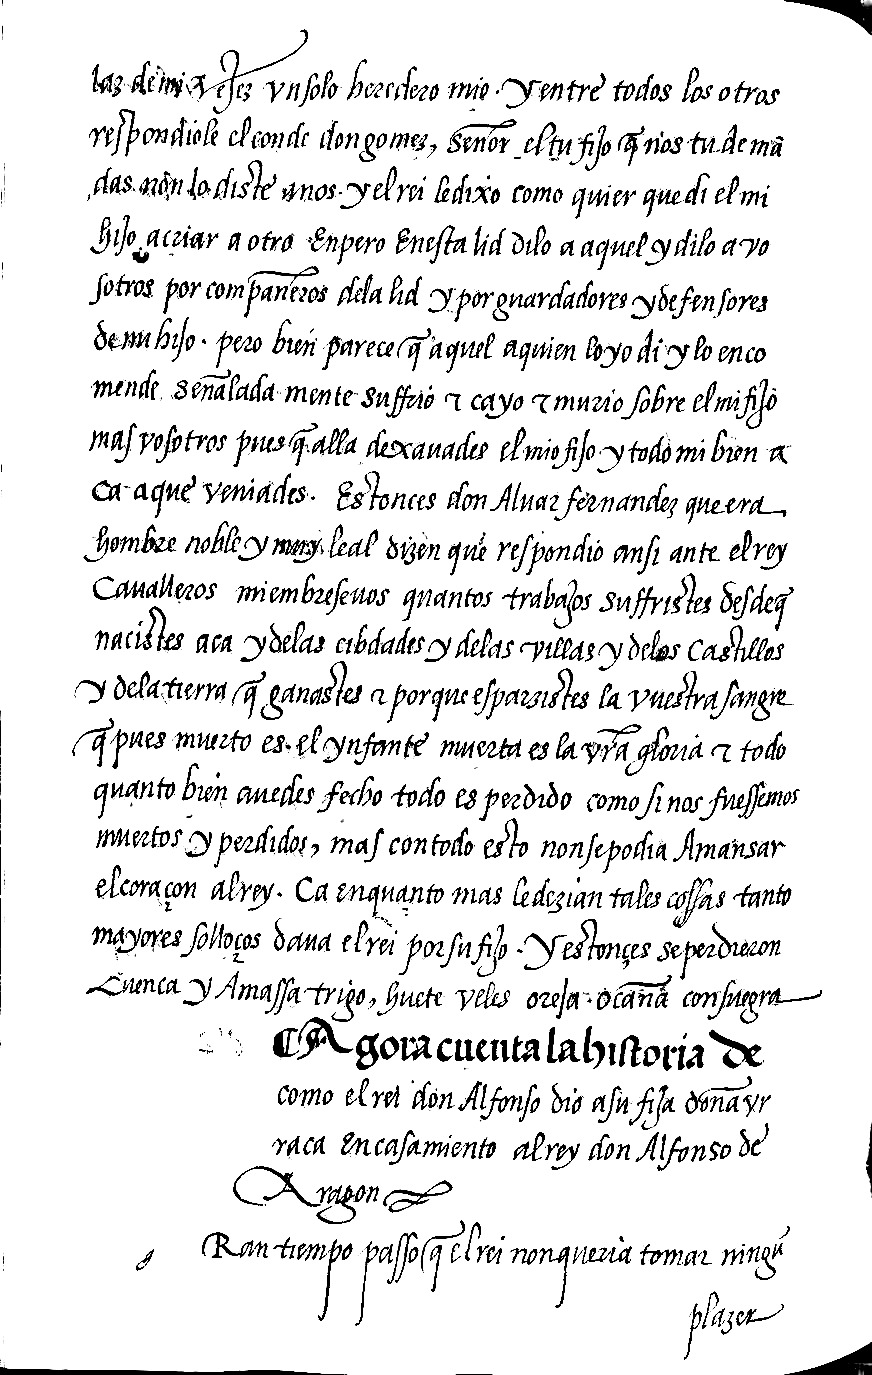 laz de mi vejez vn solo heredero mio. y entre todos los otros
respondiole el conde don gomez, señor el tu fijo q̃ nos tu demã
das non lo diste a nos. y el rei le dixo como quier que di el mi
hijo a criar a otro Enpero En esta lid dilo a aquel y dilo a vo
sotros por compañeros de la lid y por guardadores y defensores
de mi hijo. pero bien parece q̃ aquel a quien lo yo di y lo enco
mende señalada mente suffrio τ cayo τ murio sobre el mi fijo
mas vosotros pues q̃ alla dexauades el mio fijo y todo mi bien a
ca a que veniades. Estonces don Aluar fernandez que era
hombre noble y muy leal dizen que respondio ansi ante el rey
Caualleros miembresevos quantos trabajos suffristes desde q̃
nacistes aca y de las cibdades y de las villas y de los Castillos
y de la tierra q̃ ganastes τ porque esparzistes la vuestra sangre
q̃ pues muerto es. el ynfante muerta es la vr̃a gloria τ todo
quanto bien auedes fecho todo es perdido como si nos fuessemos
muertos y perdidos, mas con todo esto non se podia Amansar
el coraçon al rey. Ca enquanto mas le dezian tales cossas tanto
mayores solloços daua el rei por su fijo. Y estonçes se perdieron
Cuenca y Amassa trigo, huete veles oreja. ocaña consuegra
Agora cuenta la historia de
como el rei don Alfonso dio a su fija doña vr
raca En casamiento al rey don Alfonso de
Aragon
Ran tiempo passo q̃ el rei non queria tomar ningũ
plazer